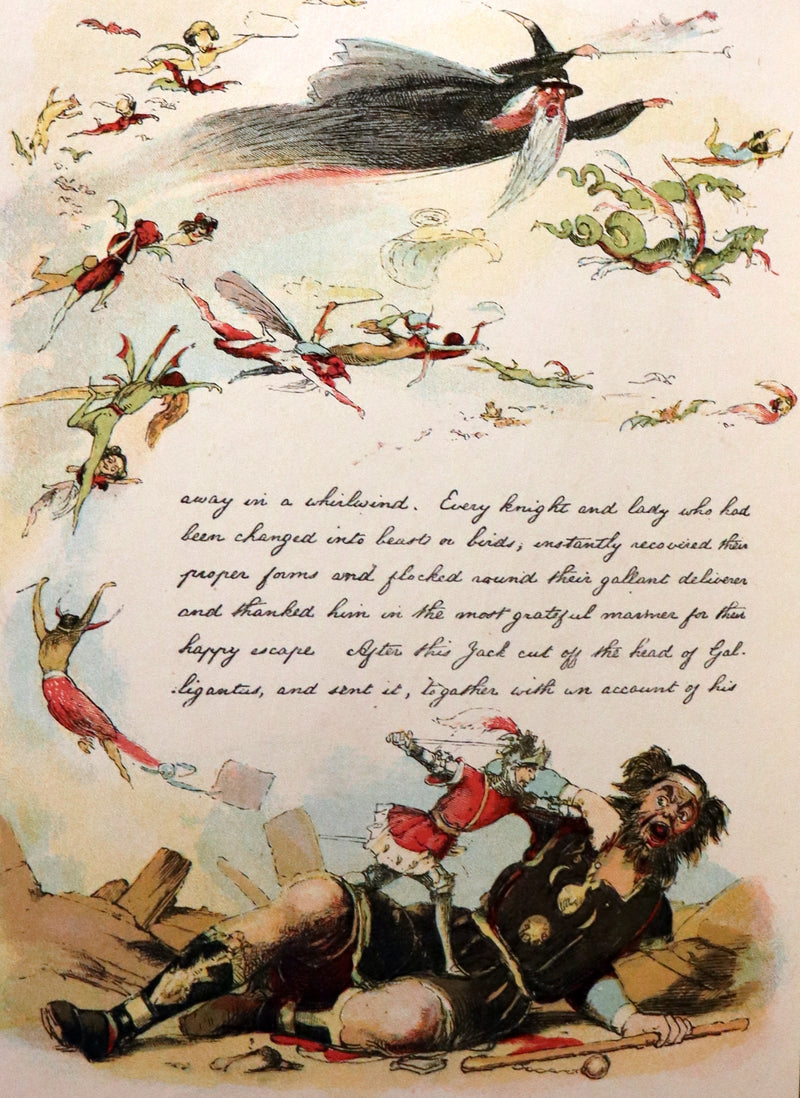 away in a whirlwind. Every knight and lady who had
been changed into beasts or birds; instantly recovired their
proper forms and flocked round their gallant deliverer
and thanked him in the most grateful manner for their
happy escape After this Jack cut off the head of Gal-
ligantus, and sent it, togather with an account of his